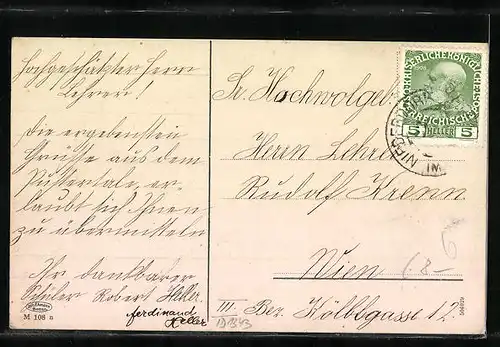 Hochgeschätzter Herr
Lehrer!
Die ergebensten
Grüsse aus dem
Pustertale er-
laubt sich Ihnen
zu übermitteln
Ihr dankbarer
Schüler Robert Heller.
ferdinand
Heller
M 108 a
Sr. Hochwolgeb.
Herrn Lehrer
Rudolf Krenn
Wien
III. Bez. Kölblgasse 12.
KAISERLICHE KÖNIGLICHE
ÖSTERREICHISCHE
5 HELLER 5
NIEDERDORF
68-